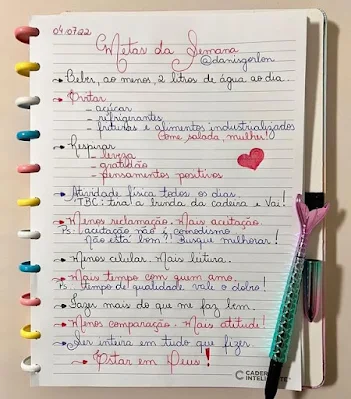 04.07.22
Metas da Semana
@danisgorlon
→ Beber, ao menos, 2 litros de água ao dia.
→ Evitar
- açúcar
- refrigerantes
- frituras e alimentos industrializados
Come salada, mulher!
→ Respirar
- leveza
- gratidão
- pensamentos positivos
→ Atividade física todos os dias.
TBC: tira a bunda da cadeira e Vai!
→ Menos reclamação. Mais aceitação.
Ps: aceitação não é comodismo.
Não está bom? Busque melhorar!
→ Menos celular. Mais leitura.
→ Mais tempo com quem amo.
Ps: tempo de qualidade vale o dobro!
→ Fazer mais do que me faz bem.
→ Menos comparação. Mais atitude!
→ Ser inteira em tudo que fizer.
→ Estar em Deus!
CADERNO
INTELIGENTE